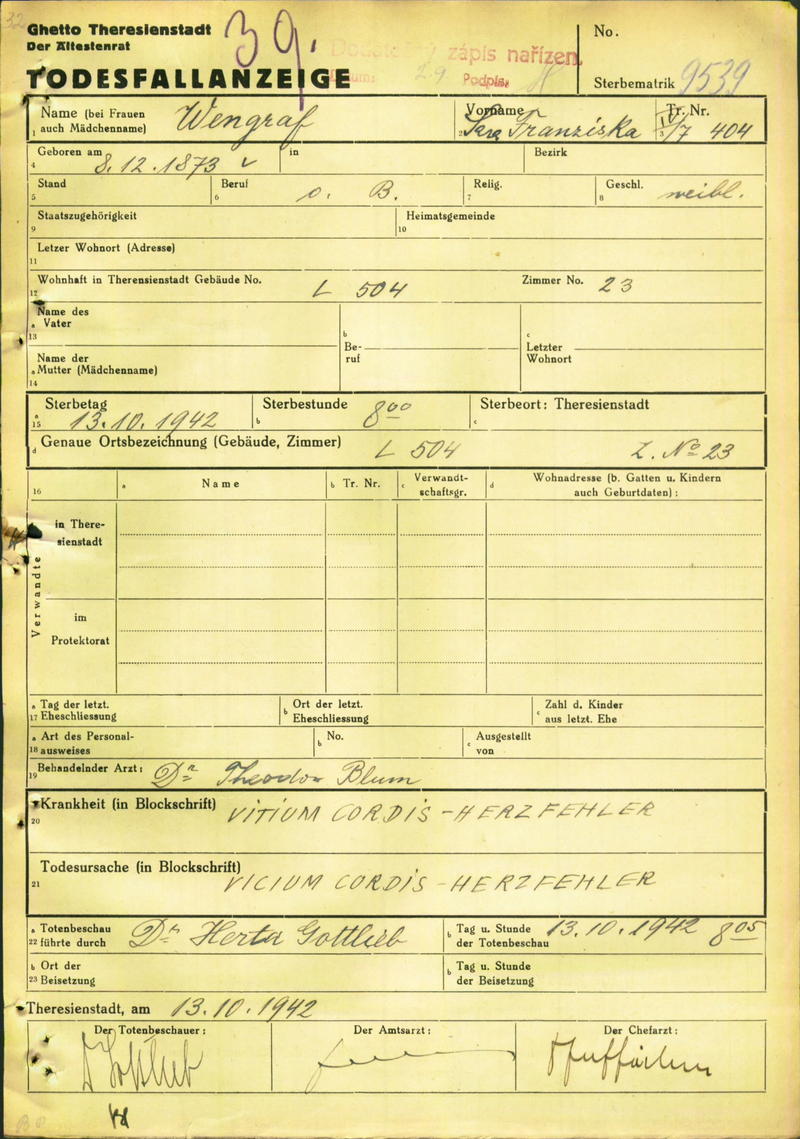 32
Ghetto Theresienstadt
Der Ältestenrat
39.
Dodatečný zápis nařízen
Podpis:
No.
TODESFALLANZEIGE
Sterbematrik 9539
Name (bei Frauen auch Mädchenname) Wengraf
1
Vorname Sara Franziska
2
Tr. Nr. IV/7 404
3
Geboren am 8.12.1873
4
in
Bezirk
Stand
5
Beruf o. B.
6
Relig.
7
Geschl. weibl.
8
Staatszugehörigkeit
9
Heimatsgemeinde
10
Letzer Wohnort (Adresse)
11
Wohnhaft in Therensienstadt Gebäude No. L 504
12
Zimmer No. 23
Name des
a Vater
13
b
Be-
ruf
c
Letzter
Wohnort
Name der
a Mutter (Mädchenname)
14
Sterbetag 13.10.1942
a
15
Sterbestunde 8 00
b
Sterbeort: Theresienstadt
c
d Genaue Ortsbezeichnung (Gebäude, Zimmer) L 504 Z. No 23
16
a Name
b Tr. Nr.
c Verwandt-
schaftsgr.
d Wohnadresse (b. Gatten u. Kindern
auch Geburtdaten) :
Verwandte
in There-
sienstadt
im
Protektorat
a Tag der letzt.
17 Eheschliessung
b Ort der letzt.
Eheschliessung
c Zahl d. Kinder
aus letzt. Ehe
a Art des Personal-
18 ausweises
b No.
c Ausgestellt
von
Behandelnder Arzt: Dr Theodor Blum
19
Krankheit (in Blockschrift) VITIUM CORDIS - HERZFEHLER
20
Todesursache (in Blockschrift) VICIUM CORDIS - HERZFEHLER
21
a Totenbeschau
22 führte durch Dr Herta Gottlieb
b Tag u. Stunde
der Totenbeschau 13.10.1942 8 05
b Ort der
23 Beisetzung
b Tag u. Stunde
der Beisetzung
Theresienstadt, am 13.10.1942
Der Totenbeschauer:
Der Amtsarzt:
Der Chefarzt:
Dr Gottlieb